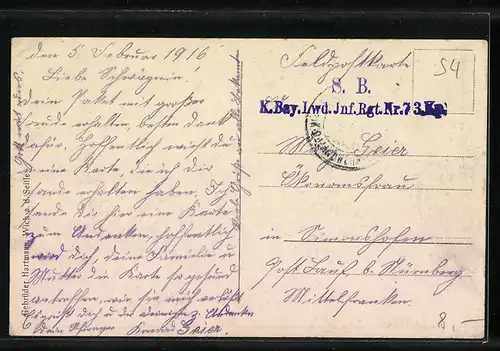 den 5. Februar 1916
Liebe Schwägerin!
Dein Paket mit großer
Freude erhalten, besten Dank
dafür. Hoffentlich wirst du
meine Karte, die ich dir
sande erhalten haben. Ich
sende dir hier eine Karte
zum Andenken, hoffentlich
wird dich, deine Familie u
Mutter die Karte so gesund
antreffen, wie sie mich verläßt
Es grüßt dich u
dein Schwager Konrad Geier.
Gebrüder Hartmann, Wich a. d. Seille
Feldpostkarte
S. B.
K. Bay. Lwd. Jnf. Rgt. Nr. 7 3. Kp.
54
Geier
Ökonomsfrau
in Simonshofen
Post Lauf b. Nürnberg
Mittelfranken
8.–